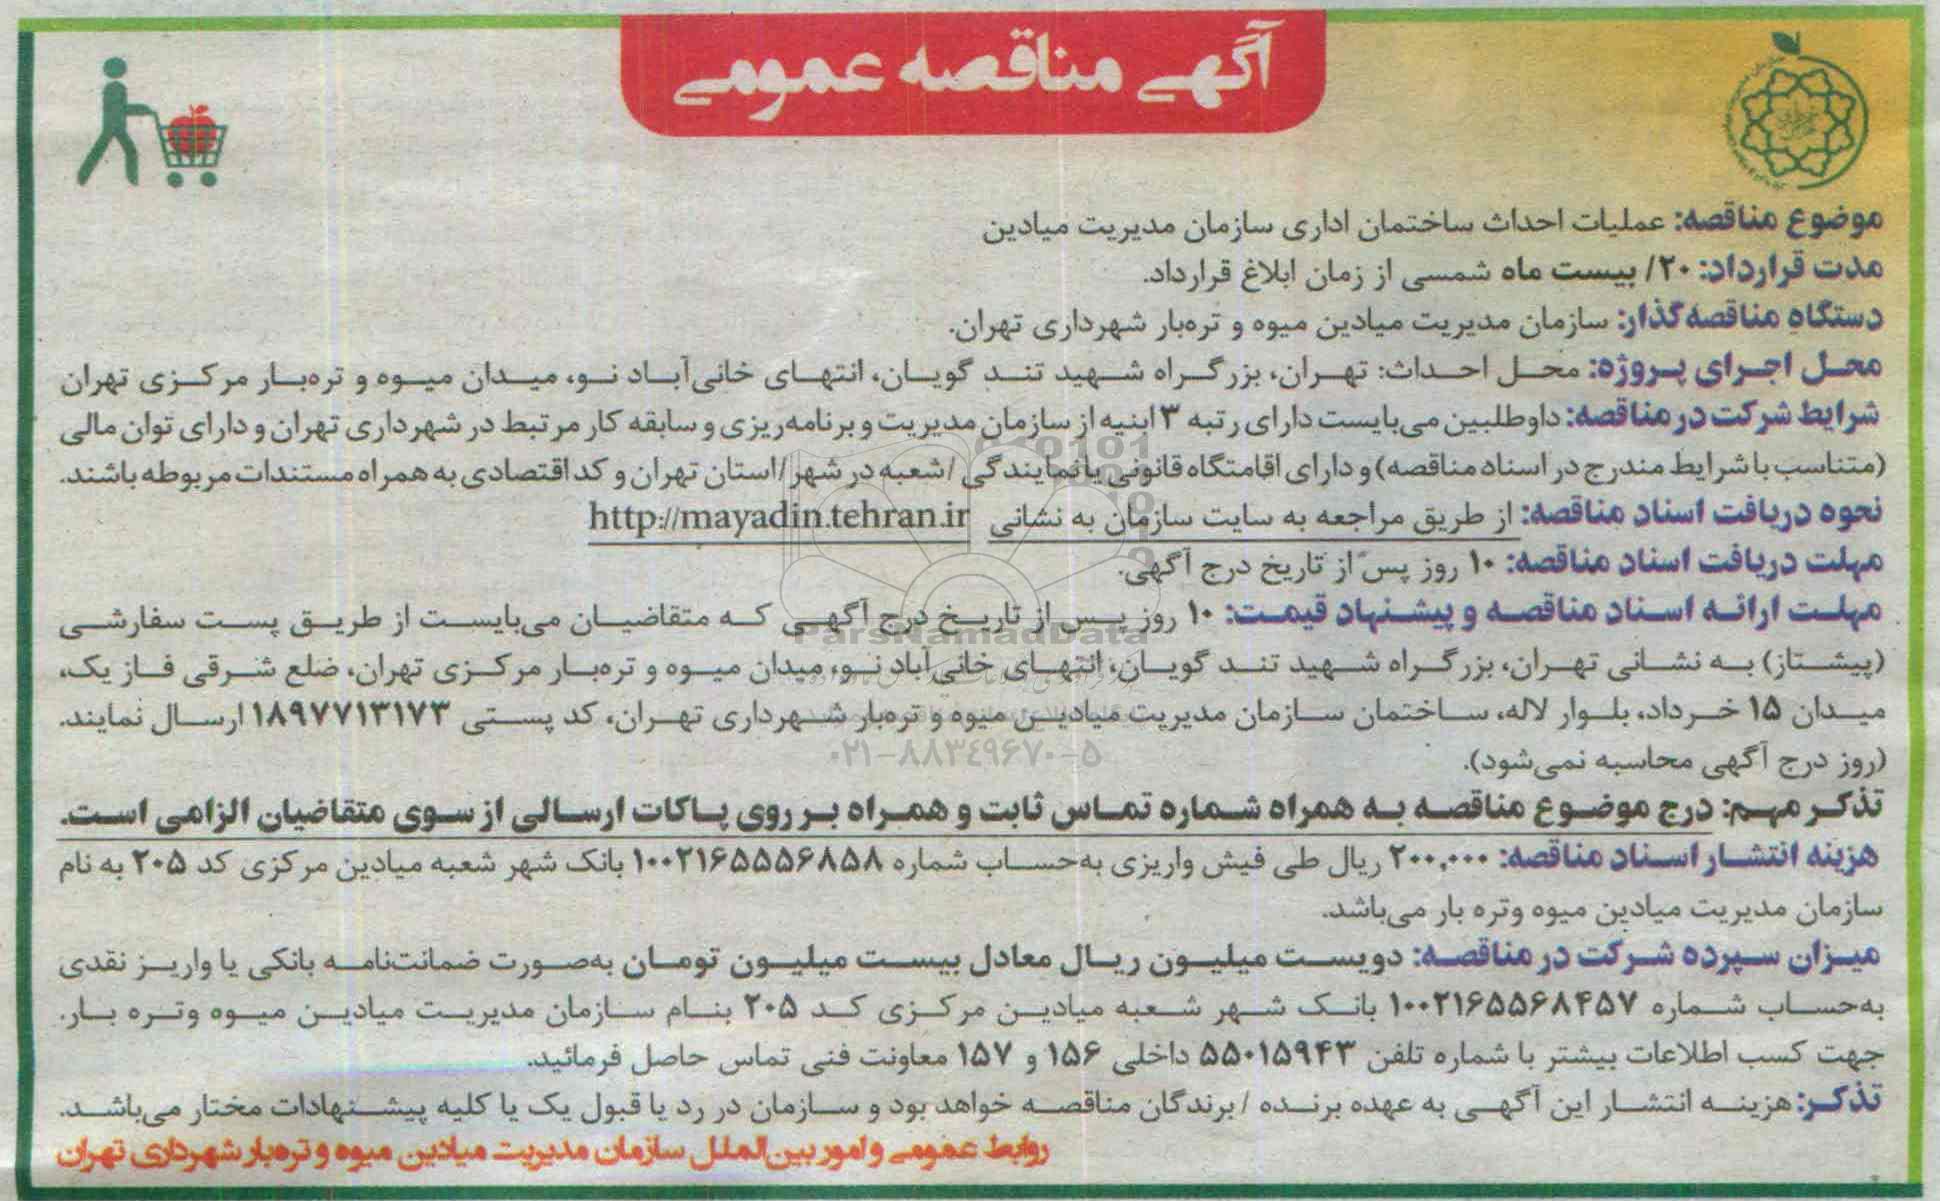 آگهی مناقصه عمومی
موضوع مناقصه: عملیات احداث ساختمان اداری سازمان مدیریت میادین
مدت قرارداد: ۲۰/ بیست ماه شمسی از زمان ابلاغ قرارداد.
دستگاه مناقصه‌گذار: سازمان مدیریت میادین میوه و تره‌بار شهرداری تهران.
محل اجرای پروژه: محل احداث: تهران، بزرگراه شهید تند گویان، انتهای خانی‌آباد نو، میدان میوه و تره‌بار مرکزی تهران
شرایط شرکت در مناقصه: داوطلبین می‌بایست دارای رتبه ۳ ابنیه از سازمان مدیریت و برنامه‌ریزی و سابقه کار مرتبط در شهرداری تهران و دارای توان مالی
(متناسب با شرایط مندرج در اسناد مناقصه) و دارای اقامتگاه قانونی یا نمایندگی /شعبه در شهر/استان تهران و کد اقتصادی به همراه مستندات مربوطه باشند.
نحوه دریافت اسناد مناقصه: از طریق مراجعه به سایت سازمان به نشانی http://mayadin.tehran.ir
مهلت دریافت اسناد مناقصه: ۱۰ روز پس از تاریخ درج آگهی.
مهلت ارائه اسناد مناقصه و پیشنهاد قیمت: ۱۰ روز پس از تاریخ درج آگهی که متقاضیان می‌بایست از طریق پست سفارشی
(پیشتاز) به نشانی تهران، بزرگراه شهید تند گویان، انتهای خانی‌آباد نو، میدان میوه و تره‌بار مرکزی تهران، ضلع شرقی فاز یک،
میدان ۱۵ خرداد، بلوار لاله، ساختمان سازمان مدیریت میادین میوه و تره‌بار شهرداری تهران، کد پستی ۱۸۹۷۷۱۳۱۷۳ ارسال نمایند.
(روز درج آگهی محاسبه نمی‌شود).
تذکر مهم: درج موضوع مناقصه به همراه شماره تماس ثابت و همراه بر روی پاکات ارسالی از سوی متقاضیان الزامی است.
هزینه انتشار اسناد مناقصه: ۲۰۰,۰۰۰ ریال طی فیش واریزی به‌حساب شماره ۱۰۰۲۱۶۵۵۵۶۸۵۸ بانک شهر شعبه میادین مرکزی کد ۲۰۵ به نام
سازمان مدیریت میادین میوه وتره بار می‌باشد.
میزان سپرده شرکت در مناقصه: دویست میلیون ریال معادل بیست میلیون تومان به‌صورت ضمانت‌نامه بانکی یا واریز نقدی
به‌حساب شماره ۱۰۰۲۱۶۵۵۶۸۴۵۷ بانک شهر شعبه میادین مرکزی کد ۲۰۵ بنام سازمان مدیریت میادین میوه وتره بار.
جهت کسب اطلاعات بیشتر با شماره تلفن ۵۵۰۱۵۹۴۳ داخلی ۱۵۶ و ۱۵۷ معاونت فنی تماس حاصل فرمائید.
تذکر: هزینه انتشار این آگهی به عهده برنده /برندگان مناقصه خواهد بود و سازمان در رد یا قبول یک یا کلیه پیشنهادات مختار می‌باشد.
روابط عمومی و امور بین‌الملل سازمان مدیریت میادین میوه و تره‌بار شهرداری تهران
ParsNamadData
۰۲۱-۸۸۳۴۹۶۷۰-۵